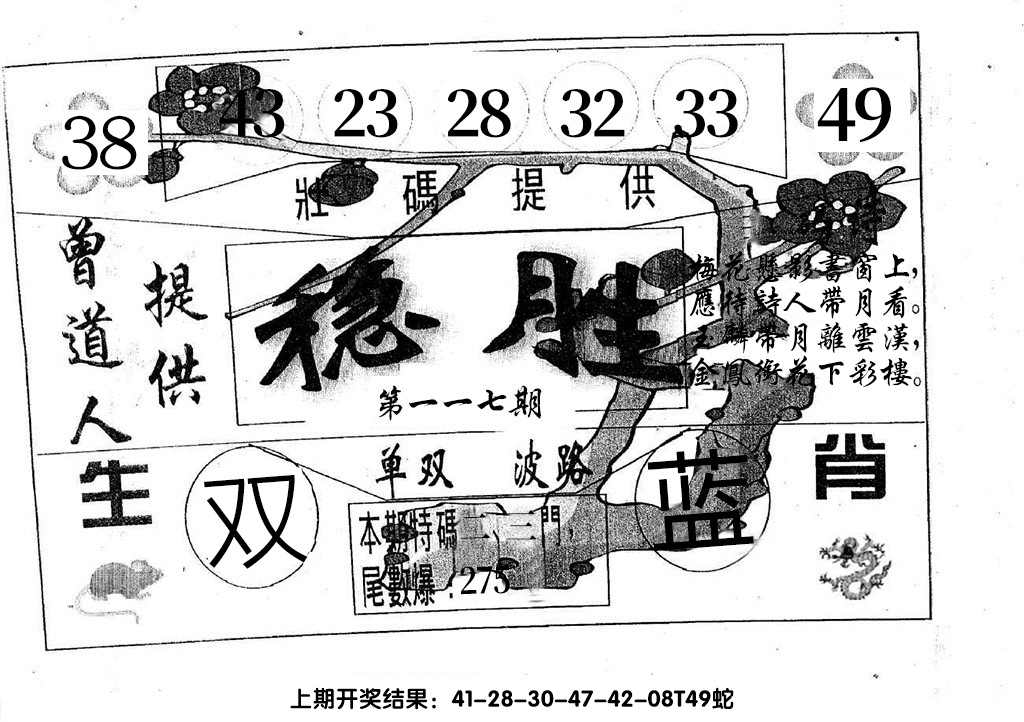 38 43 23 28 32 33 49
壯碼提供
曾道人
提供
稳胜
第一一七期
梅花懸影書窗上，
應待詩人帶月看。
玉麟帶月離雲漢，
金鳳銜花下彩樓。
单双 波路
生肖
双
蓝
本期特碼二、三門，
尾數爆：275
上期开奖结果：41-28-30-47-42-08T49蛇